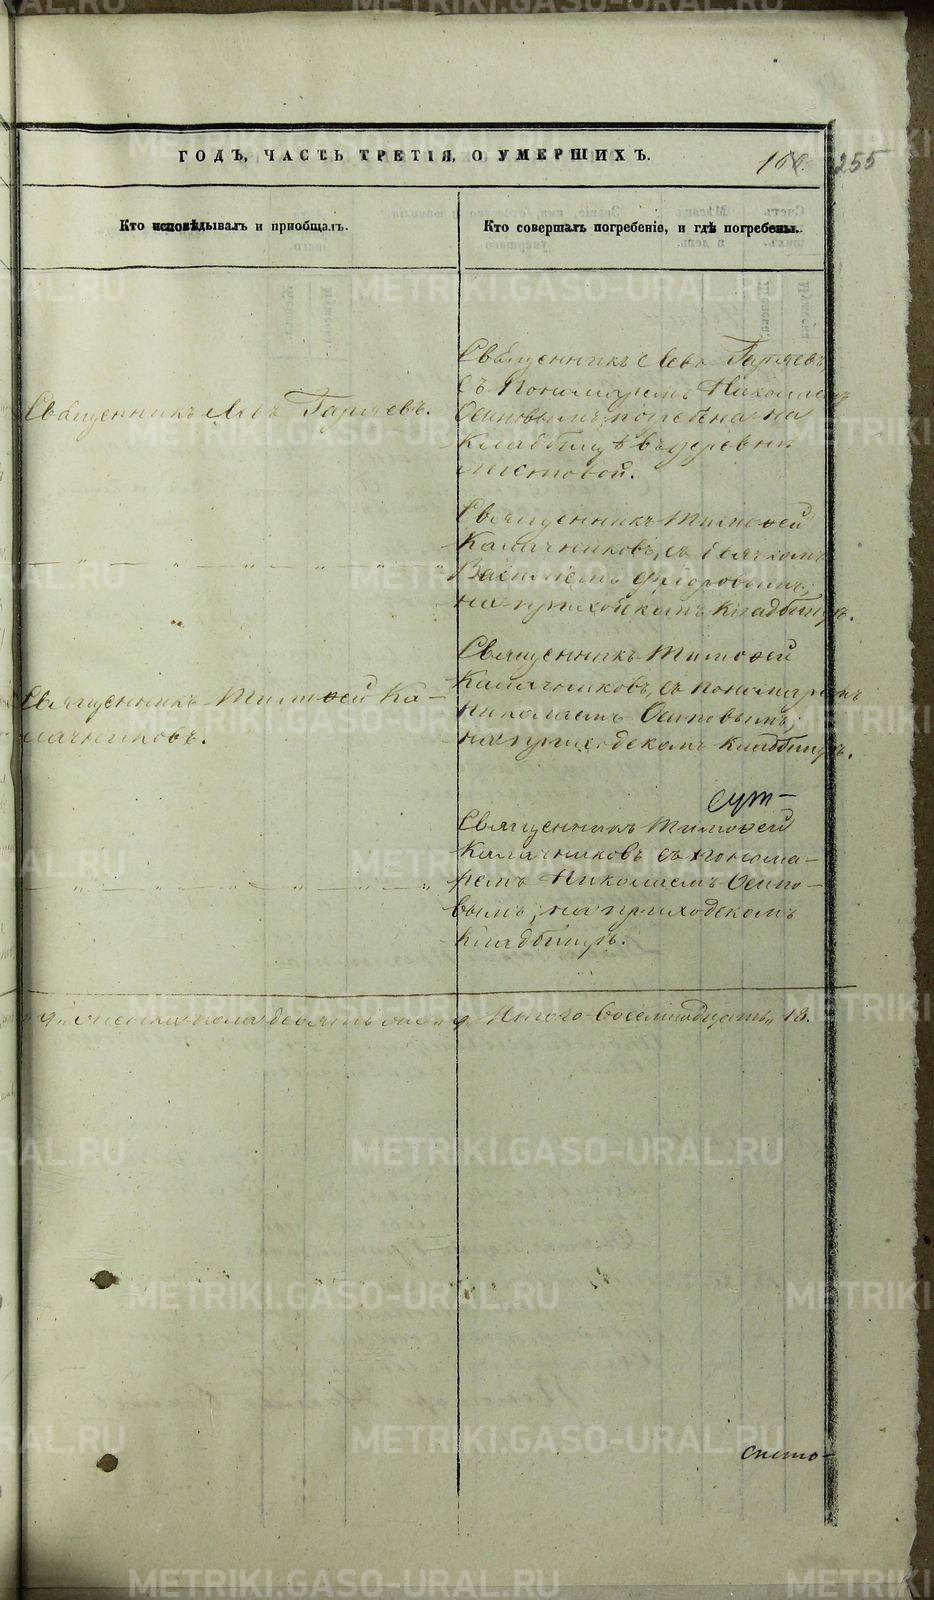 ГОДЪ, ЧАСТЬ ТРЕТІЯ, О УМЕРШИХЪ.
255
Кто исповѣдывалъ и приобщалъ.
Кто совершалъ погребеніе, и гдѣ погребены.
Священникъ Левъ Гаряевъ.
Священникъ Левъ Гаряевъ
съ Пономаремъ Николаемъ
Осиповымъ; погребена на
Кладбищѣ въ деревни
Священникъ Тимоѳей
Калачниковъ, съ дьячкомъ
Васильемъ Ѳедоровымъ;
на приходскомъ кладбищѣ.
Священникъ Тимоѳей Ка-
лачниковъ.
Священникъ Тимоѳей
Калачниковъ, съ пономаремъ
Николаемъ Осиповымъ;
на приходскомъ кладбищѣ.
Священникъ Тимоѳей
Калачниковъ съ понома-
ремъ Николаемъ Осипо-
вымъ; на приходскомъ
кладбищѣ.
женска пола девять
Итого восемнадцать, 18.
METRIKI.GASO-URAL.RU